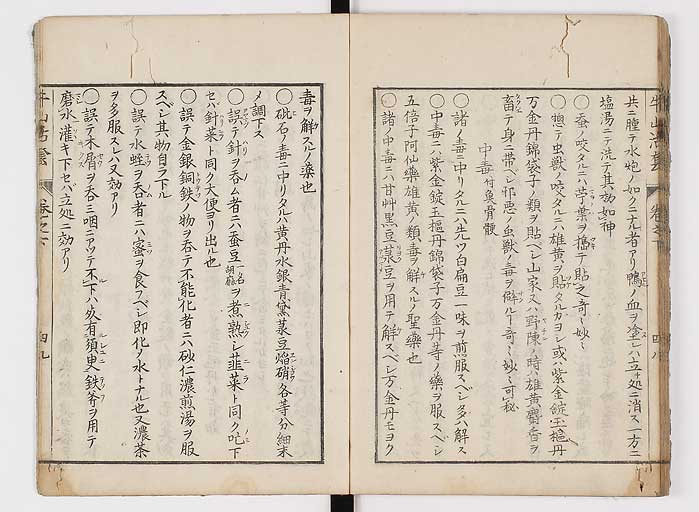 共ニ腫テ水炮ノ如クニナル者アリ鴨ノ血ヲ塗レハ立処ニ消ス一方ニ
塩湯ニテ洗テ其効如神
〇蚕ノ咬タルニハ苧葉ヲ擣テ貼之奇ミ妙ミ
〇惣テ虫獣ノ咬タルニハ雄黄ヲ貼タルカヨシ或ハ紫金錠玉樞丹
万金丹錦袋子ノ類ヲ貼ベシ山家又ハ野陳ノ時ハ雄黄麝香ヲ
畜テ身ニ帯ベシ邪悪ノ虫獣ノ毒ヲ僻ルヿ奇ミ妙ミ可秘
中毒 付裏骨鯁
〇諸ノ毒ニ中リタルニハ先ツ白扁豆一味ヲ煎服スベシ多ハ解ス
〇中毒ニハ紫金錠玉樞丹錦袋子万金丹等ノ藥ヲ服スベシ
五倍子阿仙藥雄黄ノ類毒ヲ解スルノ聖藥也
〇諸ノ中毒ニハ甘艸黒豆菉豆ヲ用テ解スベシ万金丹モヨク
毒ヲ解スルノ藥也
〇砒石ノ毒ニ中リタルハ黄丹水銀青黛菉豆焔硝各等分細末
メ調下ス
〇誤テ針ヲ呑ム者ニハ蚕豆一名胡麻ヲ煮熟シ韮菜ト同ク吃下
セバ針菜ト同ク大便ヨリ出ル也
〇誤テ金銀銅鉄ノ物ヲ呑テ不能化者ニハ砂仁濃煎湯ヲ服
スベシ其物自ラ下ル
〇誤テ水蛭ヲ呑ム者ニハ蜜ヲ食フベシ即化メ水トナル也又濃茶
ヲ多服スルハ又効アリ
〇誤テ木屑ヲ呑ミ咽ニアツテ不下ハ必有須臾鉄斧ヲ用テ
磨水灌キ下セバ立処ニ効アリ